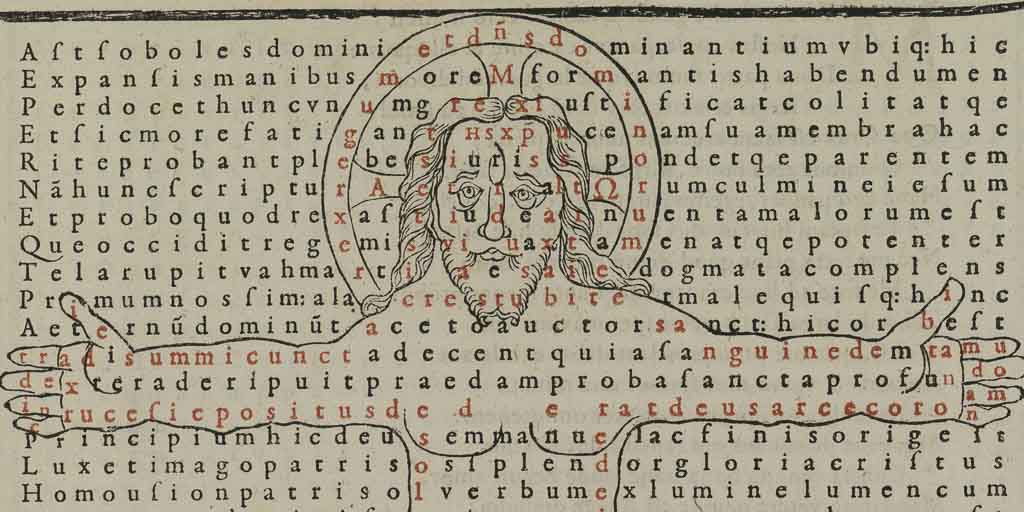 Aſtſobolesdominietdñsdominantiumvbiq:hic
ExpanſismanibusmoreMformantishabendumen
Perdocethuncvnumgrexiuſtificatcolitatqe
EtſicmorefatigantHSXPucenamſuamembrahac
Riteprobantplebesiurisspondetqeparentem
NãhuncſcripturAeternaltΩrumculmineieſum
Etproboquodrexaſtiudeainuentamalorumeſt
Queocciditregemisviuaxtamenatqepotenter
Telarupitvahmartiaesaiedogmatacomplens
Primumnosſim:alacrestubitetmalequiſq:hinc
Aeternũdominũtacetoauctorsanct:hicorbeſt
tradisummicunctadecentquiaſanguinedemtamu
dexteraderípuitpraedamprobaſanctaprofundo
inruceſicpositusdederatdeusarcecoronam
Principiumhicdeusemmanuelacfinisorigeſt
Luxetimagopatrisosſplendorgloriacriſtus
Homouſionpatrisolverbumexluminelumencum